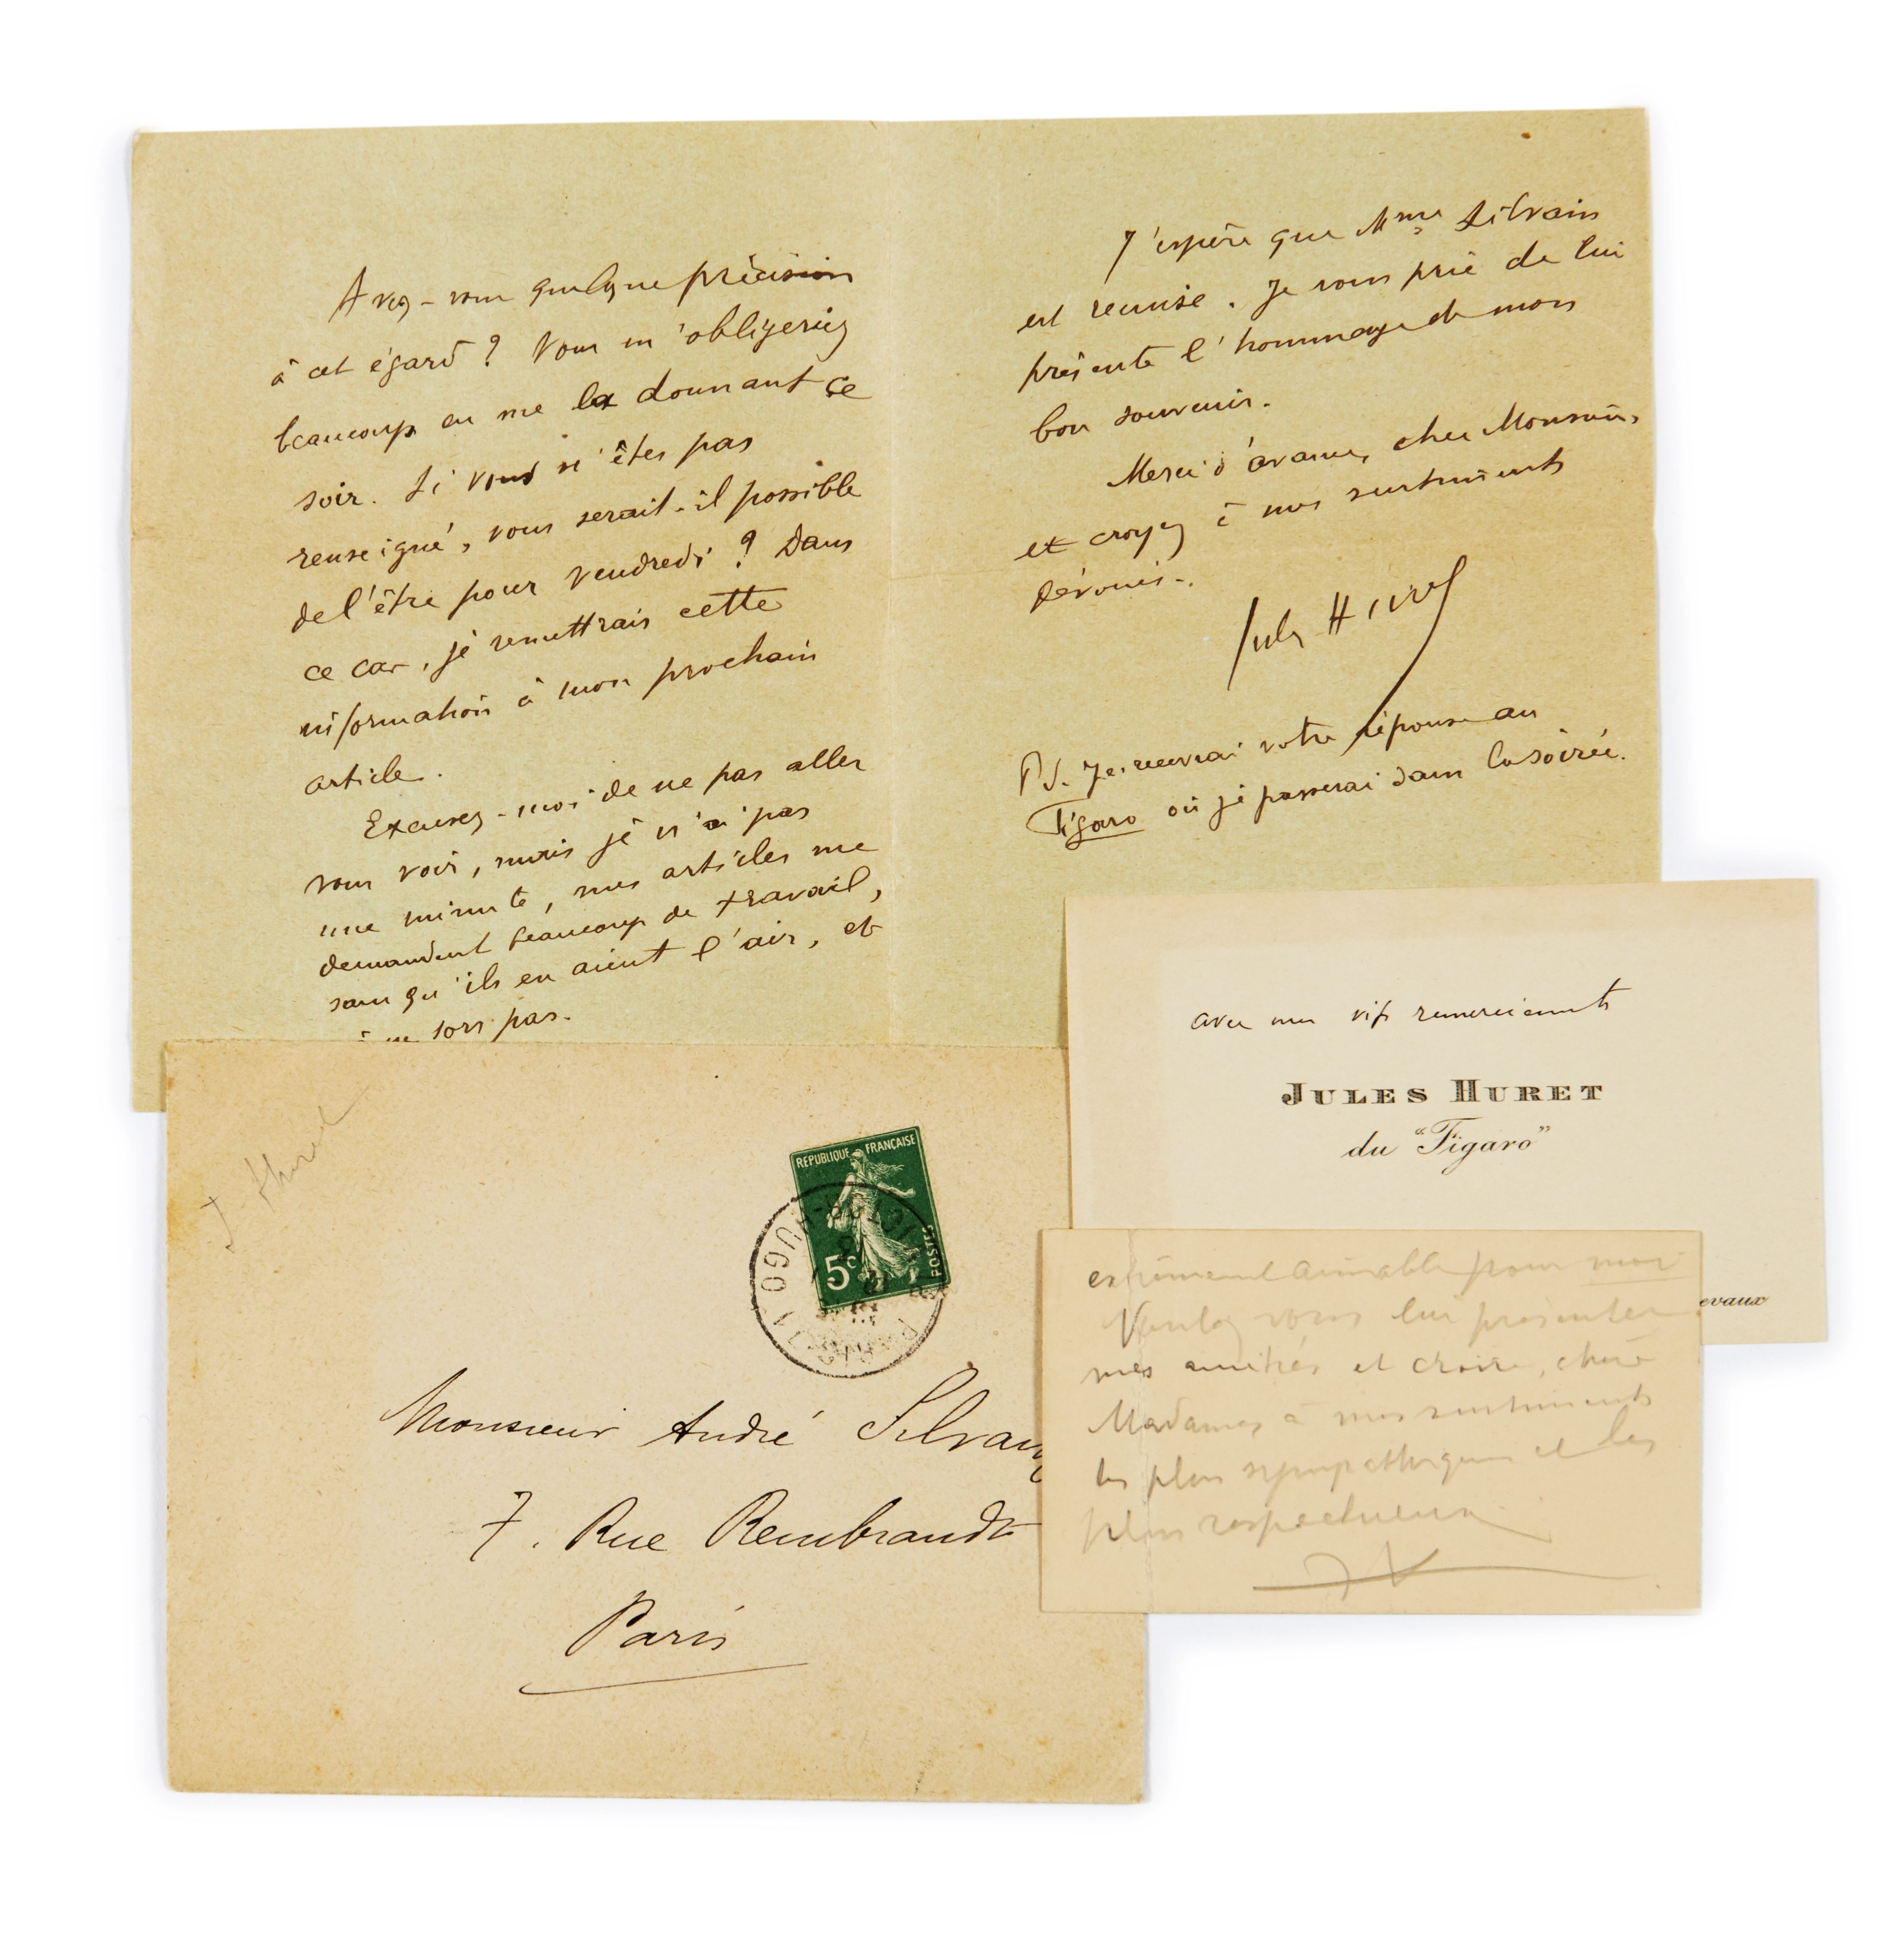 Avez-vous quelque précision
à cet égard ? Vous m'obligeriez
beaucoup en me la donnant ce
soir. Si vous n'êtes pas
renseigné, vous serait-il possible
de l'être pour vendredi ? Dans
ce cas, je remettrais cette
information à mon prochain
article.
Excusez-moi de ne pas aller
vous voir, mais je n'ai pas
une minute, mes articles me
demandent beaucoup de travail,
sans qu'ils en aient l'air, et
je ne sors pas.
J'espère que Mme Silvain
est remise. Je vous prie de lui
présenter l'hommage de mon
bon souvenir.
Merci d'avance, cher Monsieur,
et croyez à mes sentiments
dévoués.
Jules Huret
PS. Je recevrai votre réponse au
Figaro où je passerai dans la soirée.
avec mes vifs remerciements
JULES HURET
du "Figaro"
evaux
extrêmement aimable pour moi
Voulez vous lui présenter
mes amitiés et croire, chère
Madame, à mes sentiments
les plus sympathiques et les
plus respectueux
J. Huret
REPUBLIQUE FRANÇAISE
5c
POSTES
PARIS
VICTOR-HUGO
Monsieur André Silvain
7. Rue Rembrandt
Paris